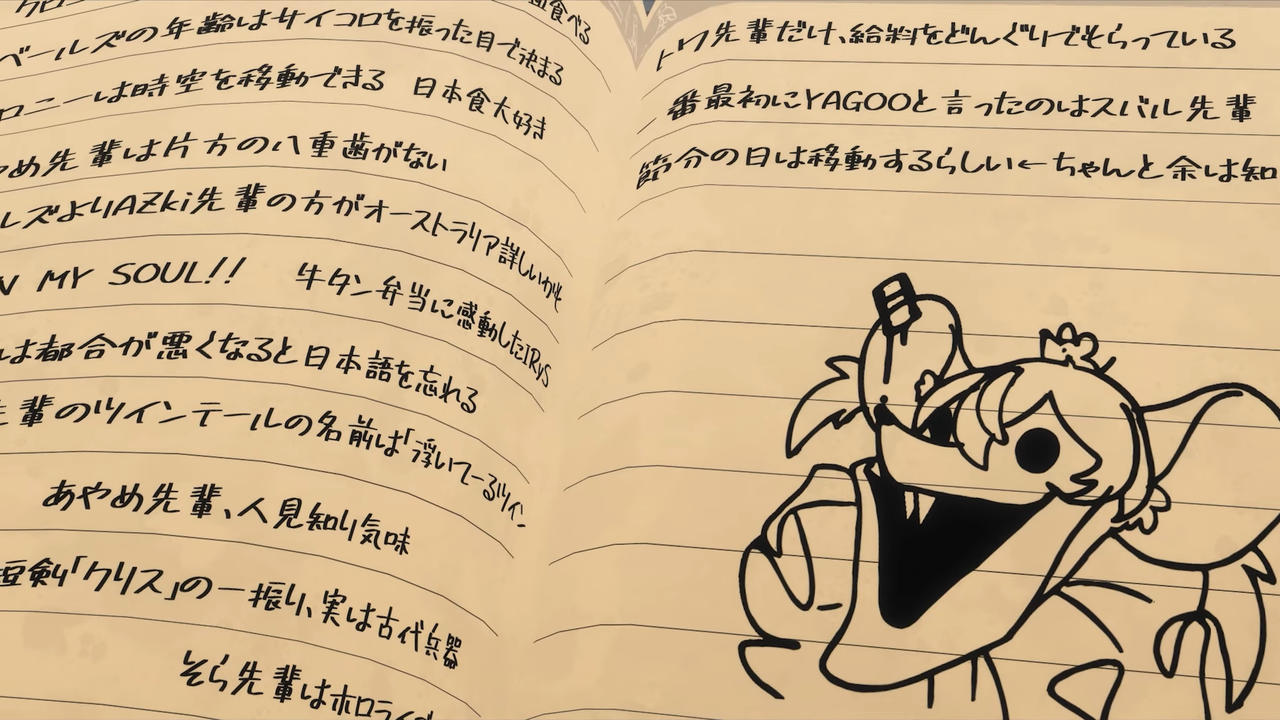 クロニ
食べる
ベールズの年齢はサイコロを振った目で決まる
ロニーは時空を移動できる　日本食大好き
やめ先輩は片方の八重歯がない
ルズよりAZKi先輩の方がオーストラリア詳しいかも
N MY SOUL!!　牛タン弁当に感動したIRyS
は都合が悪くなると日本語を忘れる
先輩のツインテールの名前は「浮いてーるツイン
あやめ先輩、人見知り気味
短剣「クリス」の一振り、実は古代兵器
そら先輩はホロライブ
トワ先輩だけ、給料をどんぐりでもらっている
番最初にYAGOOと言ったのはスバル先輩
節分の日は移動するらしい←ちゃんと余は知